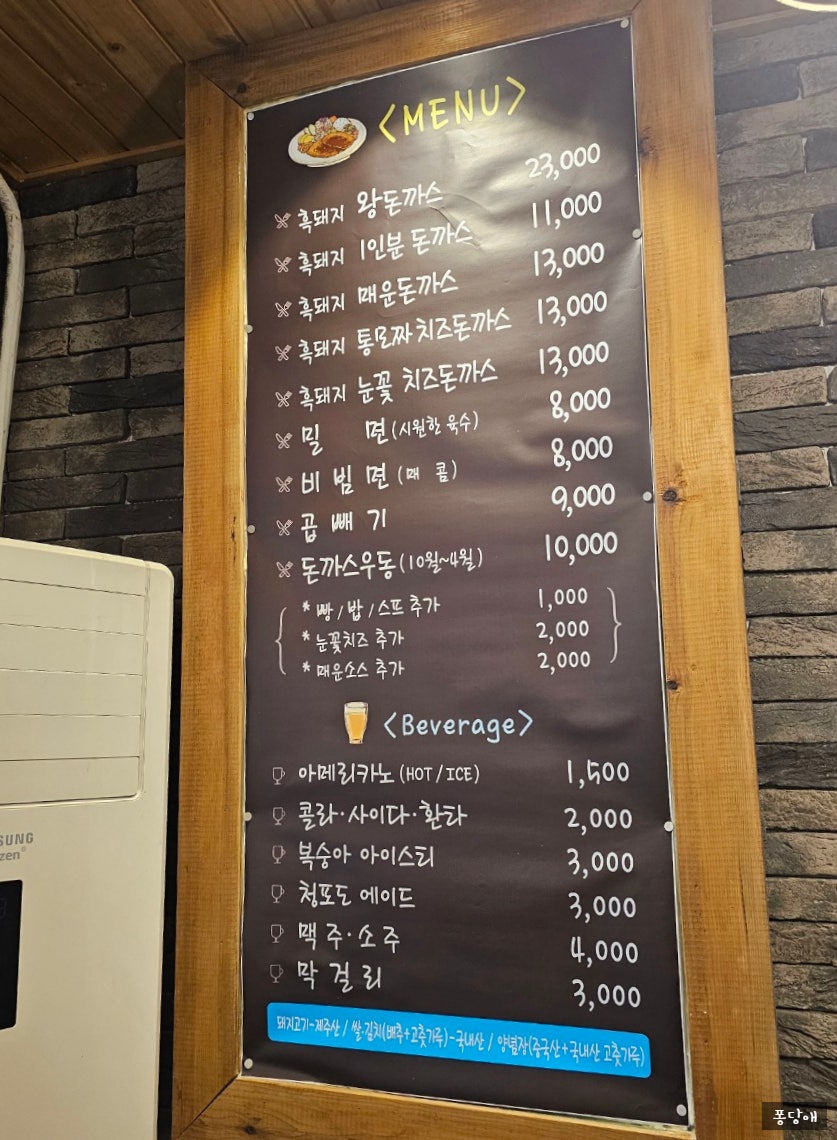 <MENU>
흑돼지 왕돈까스 23,000
흑돼지 1인분 돈까스 11,000
흑돼지 매운돈까스 13,000
흑돼지 통모짜 치즈돈까스 13,000
흑돼지 눈꽃 치즈돈까스 13,000
밀 면 (시원한 육수) 8,000
비 빔 면 (매 콤) 8,000
곱 빼 기 9,000
돈까스우동 (10월~4월) 10,000
* 빵 / 밥 / 스프 추가 1,000
* 눈꽃치즈 추가 2,000
* 매운소스 추가 2,000
<Beverage>
아메리카노 (HOT / ICE) 1,500
콜라·사이다·환타 2,000
복숭아 아이스티 3,000
청포도 에이드 3,000
맥 주·소 주 4,000
막 걸 리 3,000
돼지고기-제주산 / 쌀·김치(배추+고춧가루)-국내산 / 양념장(중국산+국내산 고춧가루)
SUNG
zen
퐁당애